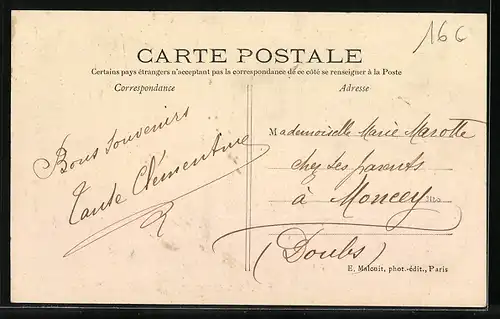 166
CARTE POSTALE
Certains pays étrangers n'acceptant pas la correspondance de ce côté se renseigner à la Poste
Correspondance
Adresse
Bons souvenirs
Tante Clémentine
Mademoiselle Marie Marotte
chez ses parents
à Moncey
(Doubs)
E. Malcuit, phot.-édit., Paris